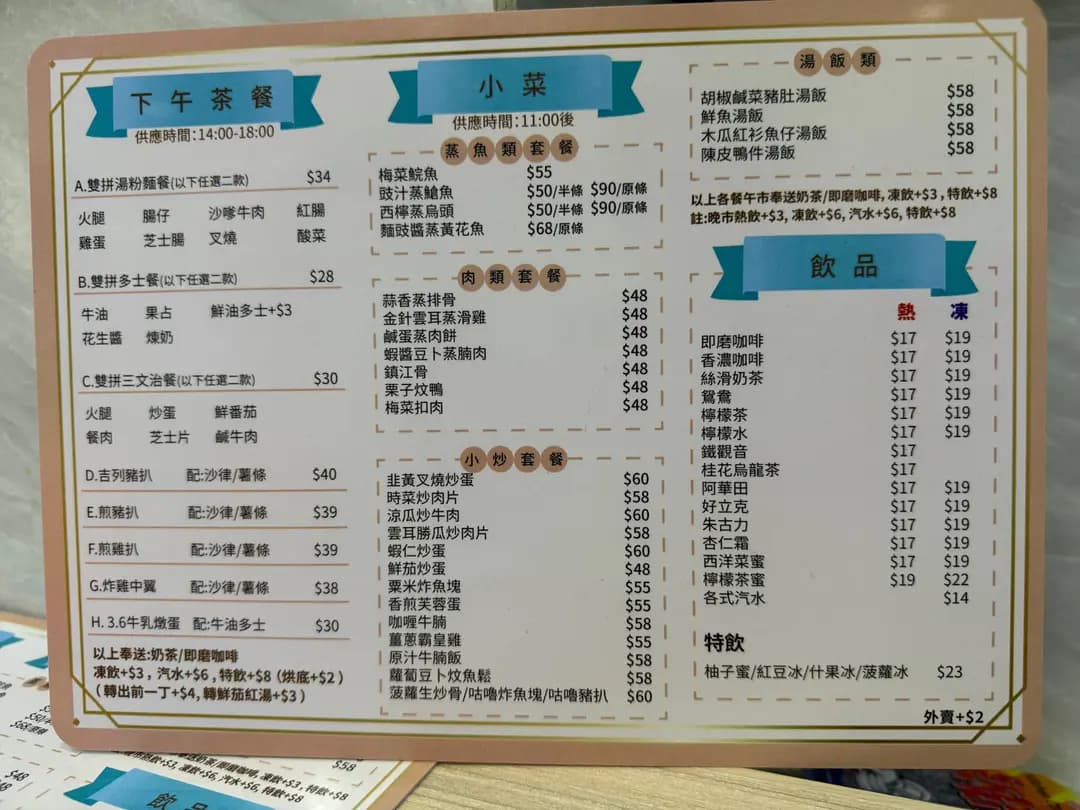 下午茶餐
供應時間:14:00-18:00
A.雙拼湯粉麵餐(以下任選二款) $34
火腿 腸仔 沙嗲牛肉 紅腸
雞蛋 芝士腸 叉燒 酸菜
B.雙拼多士餐(以下任選二款) $28
牛油 果占 鮮油多士+$3
花生醬 煉奶
C.雙拼三文治餐(以下任選二款) $30
火腿 炒蛋 鮮番茄
餐肉 芝士片 鹹牛肉
D.吉列豬扒 配:沙律/薯條 $40
E.煎豬扒 配:沙律/薯條 $39
F.煎雞扒 配:沙律/薯條 $39
G.炸雞中翼 配:沙律/薯條 $38
H. 3.6牛乳燉蛋 配:牛油多士 $30
以上奉送:奶茶/即磨咖啡
凍飲+$3 , 汽水+$6 , 特飲+$8 (烘底+$2 )
( 轉出前一丁+$4, 轉鮮茄紅湯+$3 )
小菜
供應時間:11:00後
蒸魚類套餐
梅菜鯇魚 $55
豉汁蒸鎗魚 $50/半條 $90/原條
西檸蒸烏頭 $50/半條 $90/原條
麵豉醬蒸黃花魚 $68/原條
肉類套餐
蒜香蒸排骨 $48
金針雲耳蒸滑雞 $48
鹹蛋蒸肉餅 $48
蝦醬豆卜蒸腩肉 $48
鎮江骨 $48
栗子炆鴨 $48
梅菜扣肉 $48
小炒套餐
韭黃叉燒炒蛋 $60
時菜炒肉片 $58
涼瓜炒牛肉 $60
雲耳勝瓜炒肉片 $58
蝦仁炒蛋 $60
鮮茄炒蛋 $48
粟米炸魚塊 $55
香煎芙蓉蛋 $55
咖喱牛腩 $58
薑蔥霸皇雞 $55
原汁牛腩飯 $58
蘿蔔豆卜炆魚鬆 $58
菠蘿生炒骨/咕嚕炸魚塊/咕嚕豬扒 $60
湯飯類
胡椒鹹菜豬肚湯飯 $58
鮮魚湯飯 $58
木瓜紅衫魚仔湯飯 $58
陳皮鴨件湯飯 $58
以上各餐午市奉送奶茶/即磨咖啡, 凍飲+$3 , 特飲+$8
註:晚市熱飲+$3, 凍飲+$6, 汽水+$6, 特飲+$8
飲品
熱 凍
即磨咖啡 $17 $19
香濃咖啡 $17 $19
絲滑奶茶 $17 $19
鴛鴦 $17 $19
檸檬茶 $17 $19
檸檬水 $17 $19
鐵觀音 $17
桂花烏龍茶 $17
阿華田 $17 $19
好立克 $17 $19
朱古力 $17 $19
杏仁霜 $17 $19
西洋菜蜜 $17 $19
檸檬茶蜜 $19 $22
各式汽水 $14
特飲
柚子蜜/紅豆冰/什果冰/菠蘿冰 $23
外賣+$2
$48
$48
$58
凍飲+$3 , 特飲+$8
凍飲+$6, 汽水+$6, 特飲+$8
飲品